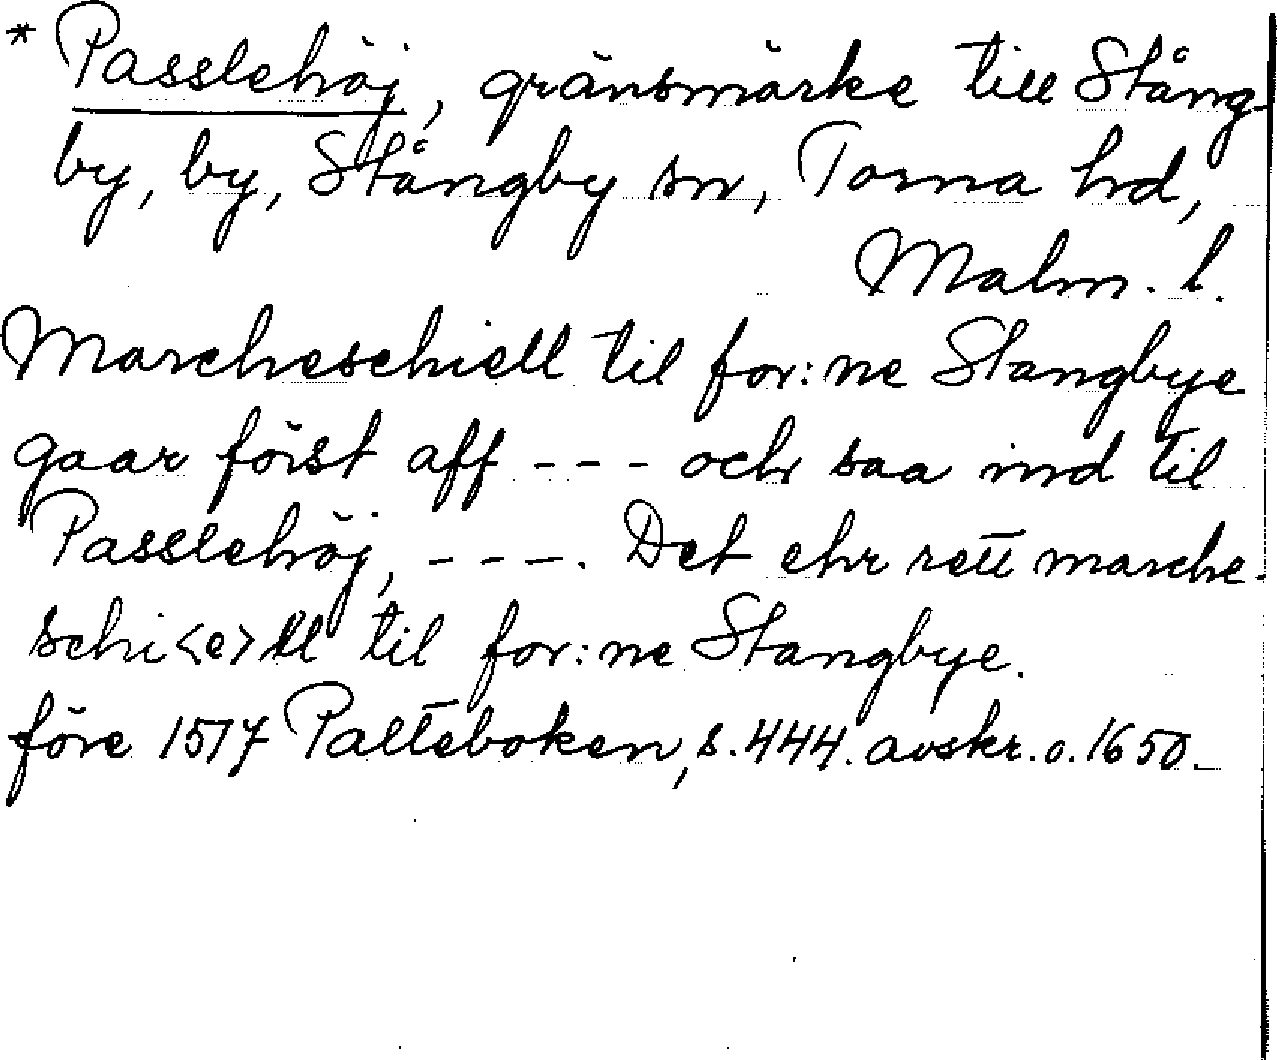 * Passlehöj, gränsmärke till Stång-
by, by, Stångby sn, Torna hd,
Malm. l.
Marcheschiell til for:ne Stangbye
gaar först aff --- och saa ind til
Passlehöj, ---. Det ehr rett marche-
schi<e>ll til for:ne Stangbye.
före 1517 Palteboken, s. 444. avskr. o. 1650.